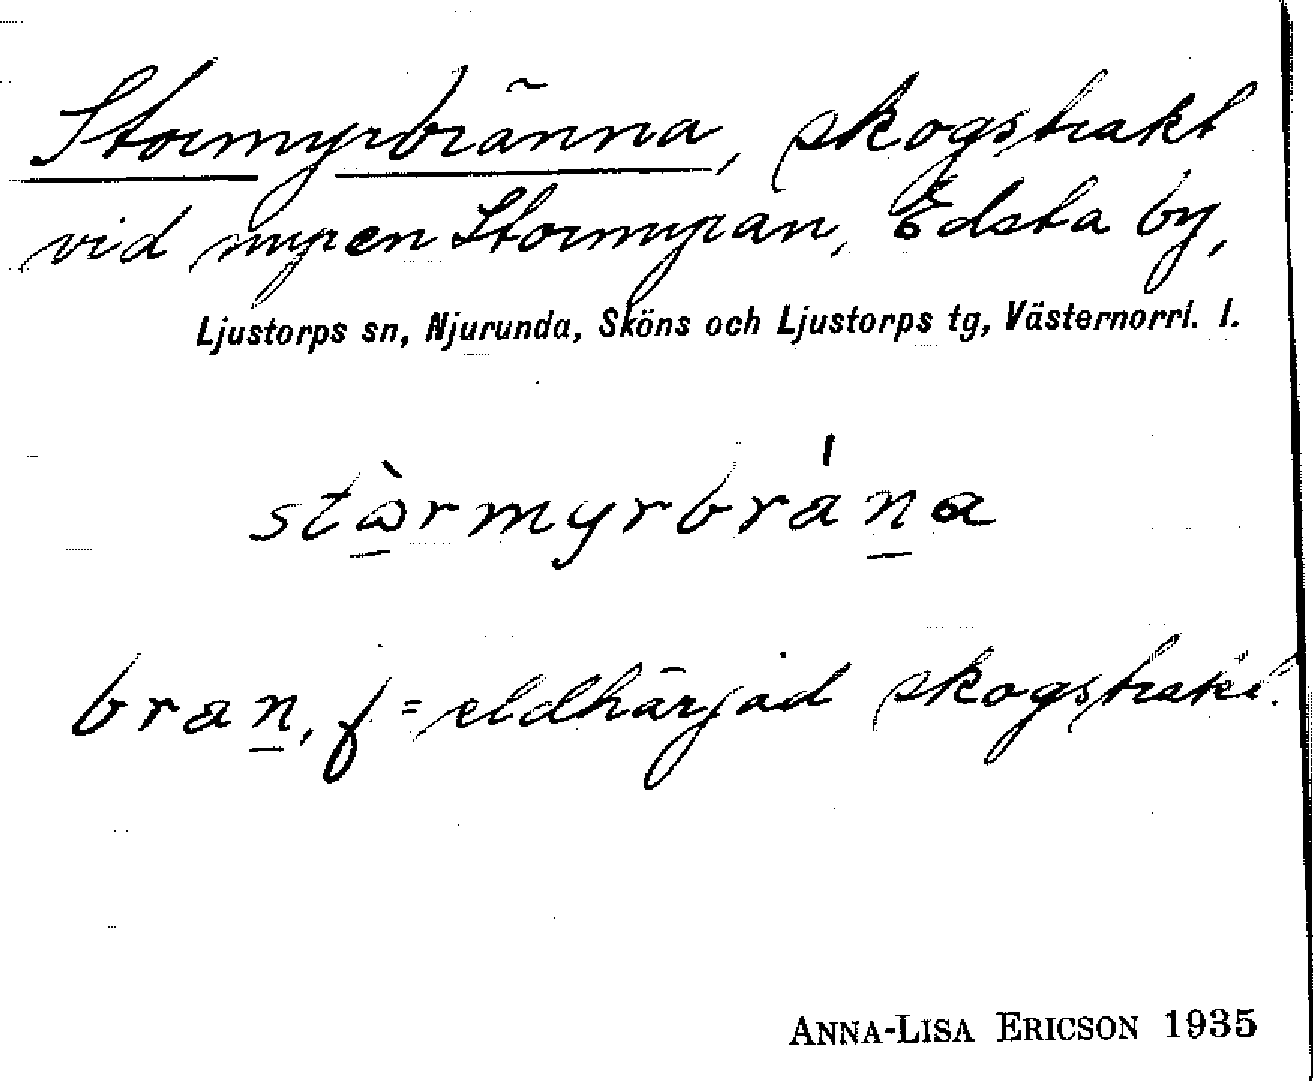 Stormyrbränna, skogstrakt
vid myren Stormyran, Edsta by,
Ljustorps sn, Njurunda, Sköns och Ljustorps tg, Västernorrl. l.
stɷ̀rmyrbrána
bran, f = eldhärjad skogstrakt.
ANNA-LISA ERICSON 1935